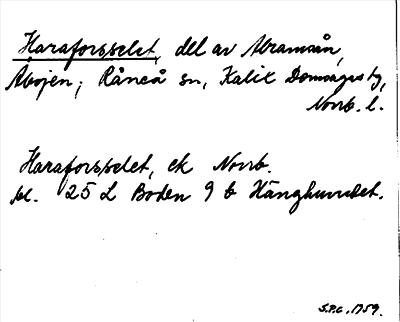 Haraforsselet, del av Abramsån,
Råneå sn, Kalix Domsagas tg,
Norrb. l.
Haraforsselet, ek Norrb.
bl. 25 L Boden 9 b Hänghuvudet.
S.P.C. 1959.